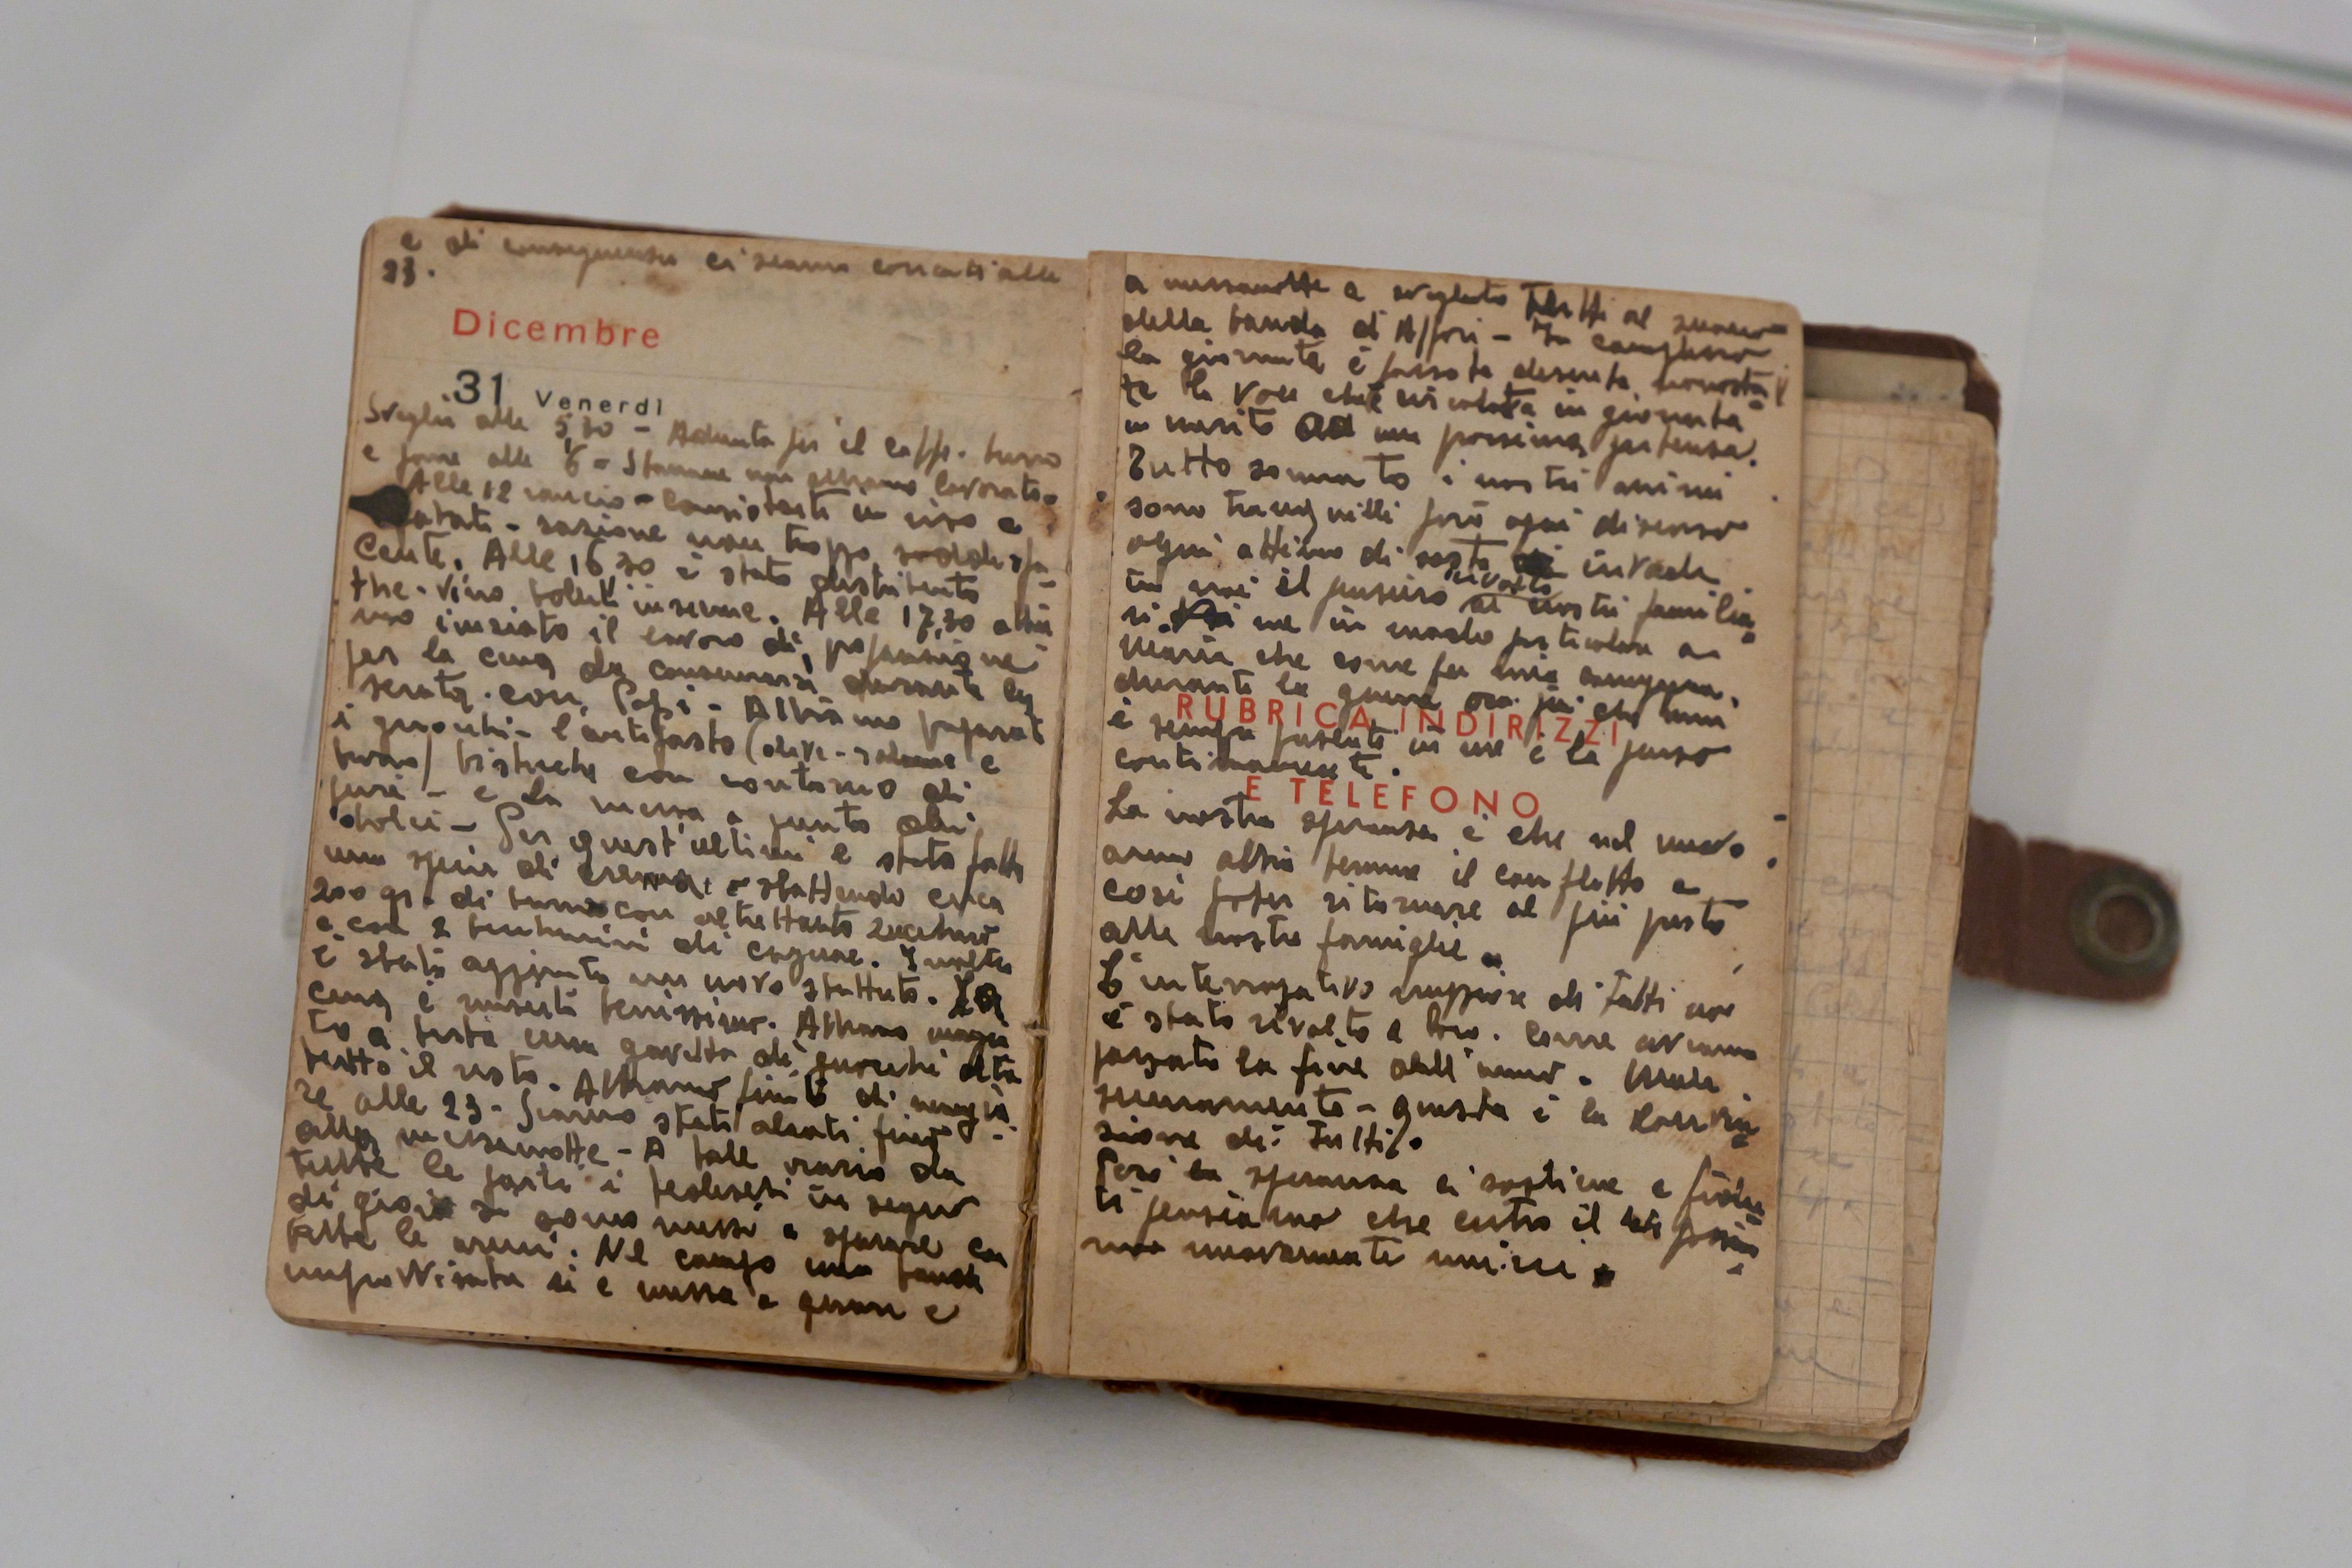 e di conseguenza ci siamo coricati alle
23.
Dicembre
31 Venerdì
Sveglia alle 5,30 - Adunata per il caffè. burro
e pane alle 6 - Stamane non abbiamo lavorato.
Alle 12 rancio - consistente in riso e
patate - razione non troppo soddisfa-
cente. Alle 16 30 è stato distribuito
the - vino bolliti insieme. Alle 17,30 abbia
mo iniziato il lavoro di preparazione
per la cena da consumarsi durante la
serata. con Pepi - Abbiamo preparat
i gnocchi - l'antipasto (olive - salame e
burro) bistecche con contorno di
purè - e la messa a punto dei
dolci - Per quest'ultimi è stato fatto
una specie di crema: sbattendo circa
200 gr. di burro con altrettanto zucchero
e con 2 bicchierini di cognac. Inoltre
è stato aggiunto un uovo sbattuto. La
cena è riuscita benissimo. Abbiamo mangia
to a testa una gavetta di gnocchi oltre
tutto il resto. Abbiamo finito di mangia
re alle 23 - Siamo stati alzati fino
alla mezzanotte - A tale orario da
tutte le parti i tedeschi in segno
di gioia si sono messi a sparare con
tutte le armi. Nel campo una banda
improvvisata si è messa a girare e
a mezzanotte a svegliato tutti al suono
della banda di Affori - In complesso
la giornata è passata discreta nonostan
te la voce che è circolata in giornata
in merito ad una prossima partenza.
Tutto sommato i nostri animi
sono tranquilli però ogni discorso
ogni attimo di sosta invade
in noi il pensiero rivolto ai nostri familia
ri. me in modo particolare a
Maria che come fu mia compagna
durante la guerra ora più che mai
RUBRICA INDIRIZZI
è sempre presente in me e la penso
continuamente.
E TELEFONO
La nostra speranza è che nel nuovo
anno abbia termine il conflitto e
così poter ritornare al più presto
alle nostre famiglie.
L'interrogativo maggiore di tutti noi
è stato rivolto a loro. Come avranno
passato la fine dell'anno. Male
sicuramente - questa è la convin
zione di tutti.
Però la speranza ci sostiene e fiden
ti pensiamo che entro il possia
mo nuovamente unirci.